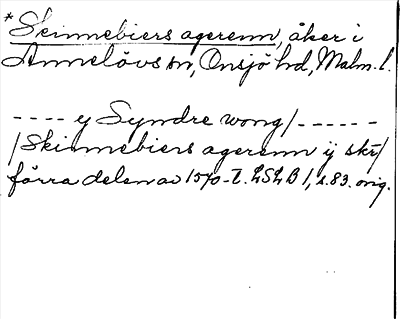 *Skinnebiers agerenn, åker i
Annelövs sn, Onsjö hd, Malm. l.
---- ej Syndre wong/------
/Skinnebiers agerenn ij skr/
förra delen av 1570-t. LSLB 1, s. 83. orig.